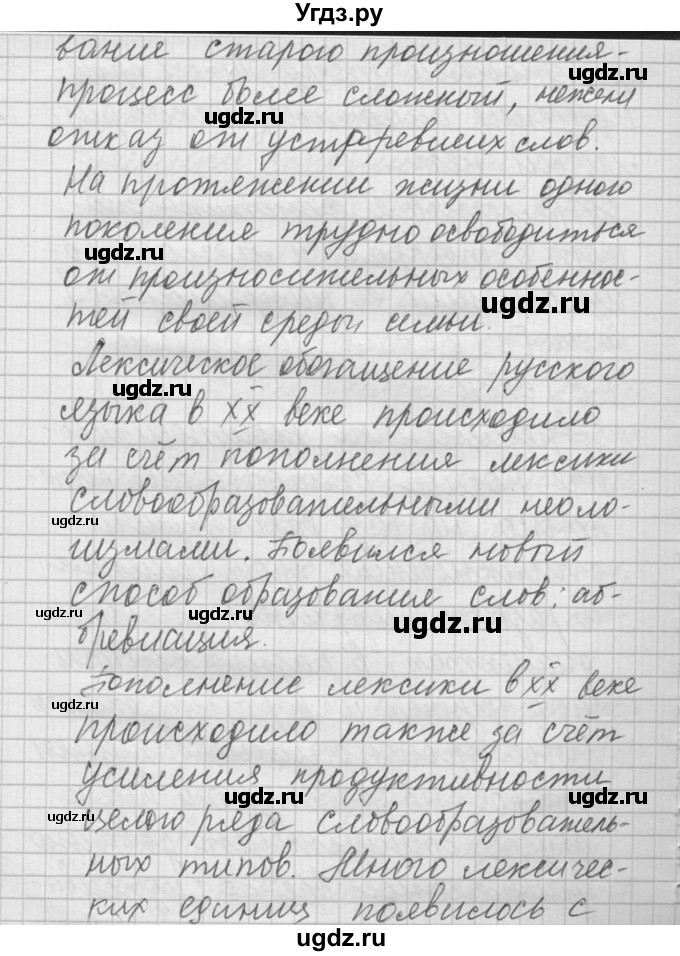 Угдз.ру
вание старого произношения-
процесс более сложный, нежели
отказ от устаревших слов.
На протяжении жизни одного
поколения трудно освободиться
от произносительных особеннос-
тей своей среды, семьи.
Лексическое обогащение русского
языка в XX веке происходило
за счёт пополнения лексики
словообразовательными неоло-
гизмами. Появился новый
способ образования слов: аб-
бревиация.
Пополнение лексики в XX веке
происходило также за счёт
усиления продуктивности
целого ряда словообразователь-
ных типов. Много лексичес-
ких единиц появилось с
ugdz.ru
ugdz.ru
ugdz.ru
ugdz.ru
ugdz.ru
ugdz.ru
ugdz.ru
ugdz.ru
ugdz.ru
ugdz.ru
ugdz.ru
ugdz.ru
ugdz.ru
ugdz.ru